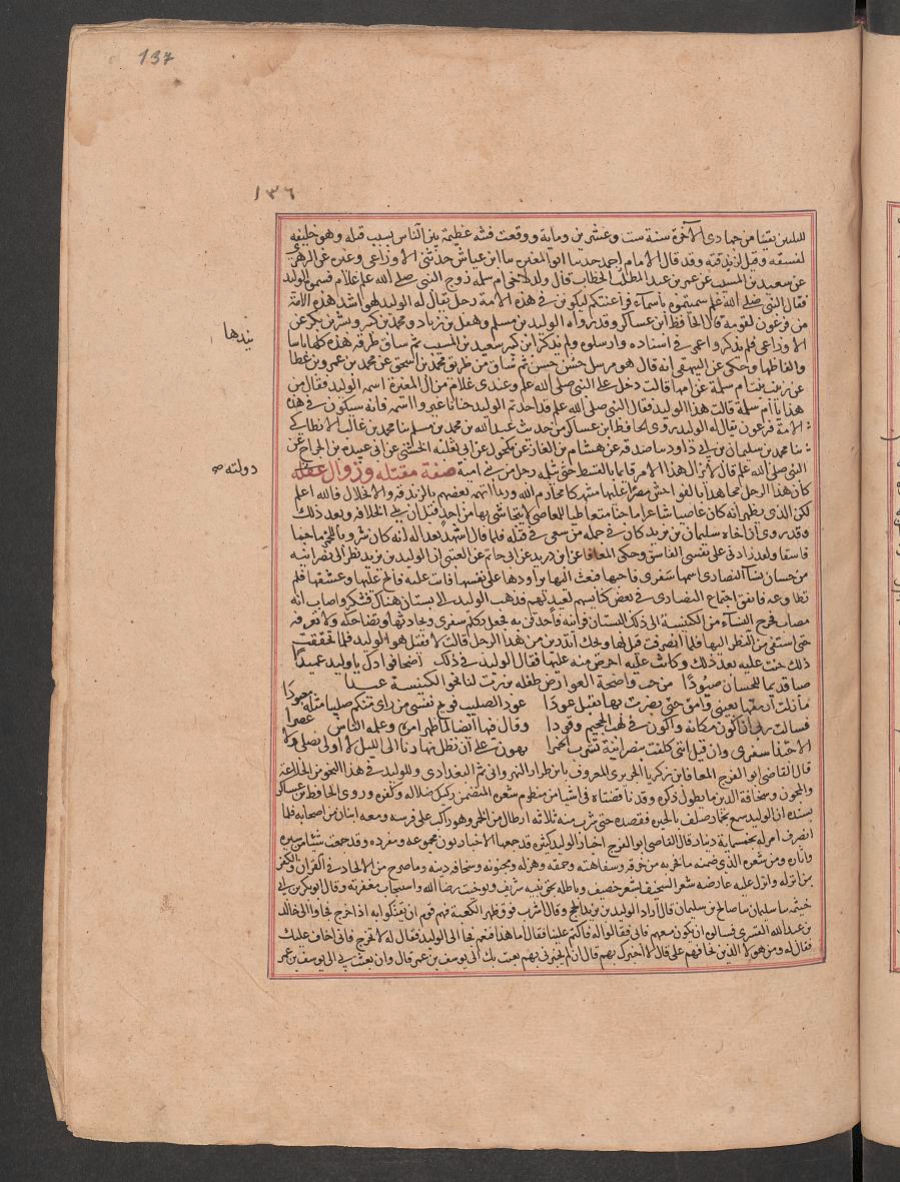 137
١٣٦
لليلتين بقيتا من جمادى الآخرة سنة ست وعشرين ومائة ووقعت فتنة عظيمة بين الناس بسبب قتله وهو خليفة
لفسقه وقيل لزندقته وقد قال الامام احمد حدثنا ابو المغيرة ثنا ابن عياش حدثني الاوزاعي وغيره عن الزهري
عن سعيد بن المسيب عن عمر بن الخطاب قال ولد لاخي ام سلمة زوج النبي صلى الله عليه غلام فسموه الوليد
فقال النبي صلى الله عليه سميتموه باسماء فراعنتكم ليكونن في هذه الامة رجل يقال له الوليد لهو اشد لهذه الامة
من فرعون لقومه قال الحافظ ابن عساكر وقد رواه الوليد بن مسلم وهقل بن زياد ومحمد بن كثير وبشر بن بكر عن
الاوزاعي فلم يذكروا عمر في اسناده وارسلوه ولم يذكر ابن كثير سعيد بن المسيب ثم ساق طرقه هذه كلها باسا
نيدها
والفاظها وحكى عن البيهقي انه قال هو مرسل حسن ثم ساق من طريق محمد بن اسحق عن محمد بن عمرو بن عطا
عن زينب بنت ام سلمة عن امها قالت دخل علي النبي صلى الله عليه وعندي غلام من ال المغيرة اسمه الوليد فقال من
هذا يا ام سلمة قالت هذا الوليد فقال النبي صلى الله عليه قد اتخذتم الوليد حنانا غيروا اسمه فانه سيكون في هذه
الامة فرعون يقال له الوليد وروى الحافظ ابن عساكر من حديث عبد الله بن محمد بن مسلم ثنا محمد بن غالب الانطاكي
ثنا محمد بن سليمان بن ابي داود ثنا صدقة عن هشام بن الغاز عن مكحول عن ابي ثعلبة الخشني عن ابي عبيدة بن الجراح عن
النبي صلى الله عليه قال لا يزال هذا الامر قائما بالقسط حتى يثلمه رجل من بني امية صفة مقتله وزوال
دولته
كان هذا الرجل مجاهدا بالفواحش مصرا عليها منتهكا محارم الله وربما اتهمه بعضهم بالزندقة والانحلال فالله اعلم
لكن الذي يظهر انه كان عاصيا شاعرا ماجنا متعاطيا للمعاصي لا يتحاشى بها من احد قبل ان يلي الخلافة وبعد ذلك
وقد روي ان اخاه سليمان بن يزيد كان في جملة من سعى في قتله فلما قال اشهد بعدا له انه كان شروبا للخمر ماجنا
فاسقا ولقد راودني على نفسي الفاسق وحكى المعافا عن ابن دريد عن ابي حاتم عن العتبي ان الوليد بن يزيد نظر الى نصرانية
من حسان نساء النصارى اسمها سفرى فاحبها فبعث اليها يراودها على نفسها فابت عليه فالح عليها وعشقها فلم
تطاوعه فاتفق اجتماع النصارى في بعض كنايسهم لعيد لهم فذهب الوليد الى بستان هناك فتنكر واصاب انه
مصاب فخرج النساء من الكنيسة الى ذلك البستان فراينه فاحدقن به فجعل يكلم سفرى ويحادثها وتضاحكه ولا تعرفه
حتى استشفى من النظر اليها فلما انصرفت قيل لها ويحك اتدرين من هذا الرجل قالت لا فقيل هو الوليد فلما تحققت
ذلك حنت عليه بعد ذلك وكانت عليه احرص منه عليها فقال الوليد في ذلك اضحى فوادك يا وليد عميدا
صبا قديما للحسان صيودا من حب واضحة العوارض طفلة برزت لنا نحو الكنيسة عيدا
ما زلت ارمقها بعيني وامق حتى بصرت بها تقبل عودا عود الصليب فويح نفسي من راى منكم صليبا مثله معبودا
فسالت ربي ان اكون مكانه واكون في لهب الجحيم وقودا وقال فيها ايضا لما ظهر امره وعلم الناس
الا حبذا سفرى وان قيل انني كلفت بنصرانية تشرب الخمرا يهون علي ان نظل نهارنا الى الليل لا اولى نصلي ولا عصرا
قال القاضي ابو الفرج المعافا بن زكريا الجريري المعروف بابن طرار النهرواني ثم البغدادي وللوليد في هذا النحو من الخلاعة
والمجون وسخافة الدين ما يطول ذكره وقد ناقضناه في اشيا من منظوم شعره المتضمن ركيك ضلاله وكفره وروى الحافظ ابن عساكر
بسنده ان الوليد سمع بخمار صلف بالحيرة فقصده حتى شرب منه ثلاثة ارطال من الخمر وهو راكب على فرسه ومعه اثنان من اصحابه فلما
انصرف امر له بخمسماية دينار قال القاضي ابو الفرج اخبار الوليد كثيرة قد جمعها الاخباريون مجموعة ومفردة وقد جمعت شيئا من سيره
واثاره ومن شعره الذي ضمنه ما فجر به من خرقه وسفاهته وحمقه وهزله ومجونه وسخافة دينه وما صرح من الالحاد في القران والكفر
بمن انزله وانزل عليه عارضه شعر السخيف بشعر حصيف وباطله بحق نبيه شريف وتوخيت رضا الله واستيجاب مغفرته وقال ابو بكر بن ابي
خيثمة ثنا سليمان ثنا صالح بن سليمان قال اراد الوليد بن يزيد الحج وقال اشرب فوق ظهر الكعبة فهم قوم ان يفتكوا به اذا خرج فجاوا الى خالد
بن عبد الله القسري فسالوه ان يكون معهم فابى فقالوا له فاكتم علينا فقال اما هذا فنعم فجا الى الوليد فقال له لا تخرج فاني اخاف عليك
فقال له ومن هولا الذين تخافهم علي قال لا اخبرك بهم قال ان لم تخبرني بهم بعثت بك الى يوسف بن عمر قال وان بعثت بي الى يوسف بن عمر